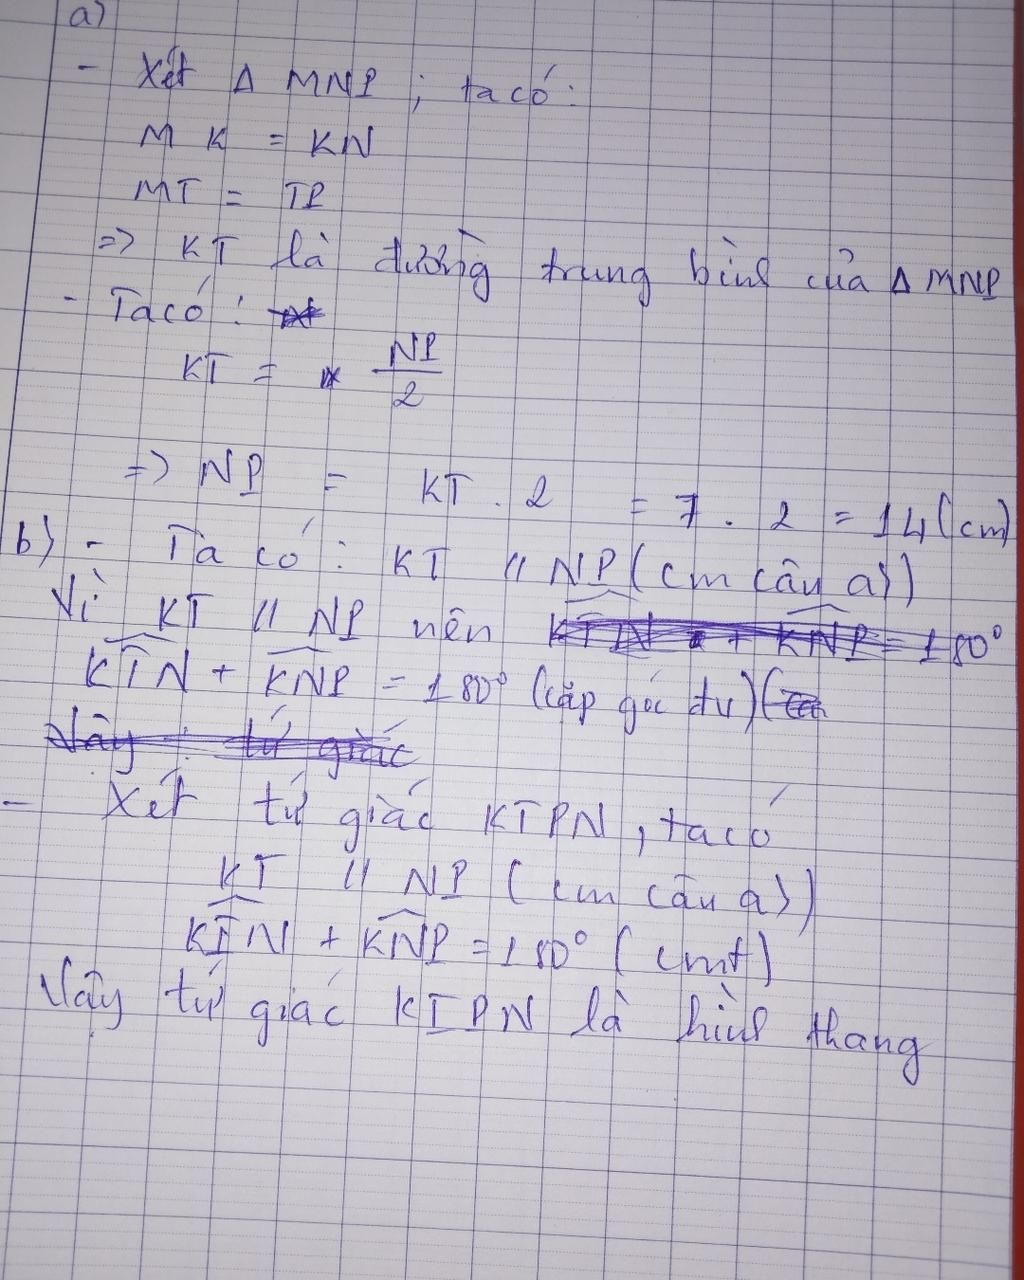 a)
- Xét Δ MNP ; ta có :
MK = KN
MT = TP
=> KT là đường trung bình của Δ MNP
- Ta có :
KT = NP/2
=> NP = KT . 2 = 7 . 2 = 14 (cm)
b) - Ta có : KT // NP (cm câu a))
Vì KT // NP nên KTN + KNP = 180°
KTN + KNP = 180° (cặp góc tv) (
Vậy : tứ giác
- Xét tứ giác KTPN, ta có
KT // NP (cm câu a))
KTN + KNP = 180° (cmt)
Vậy tứ giác KTPN là hình thang